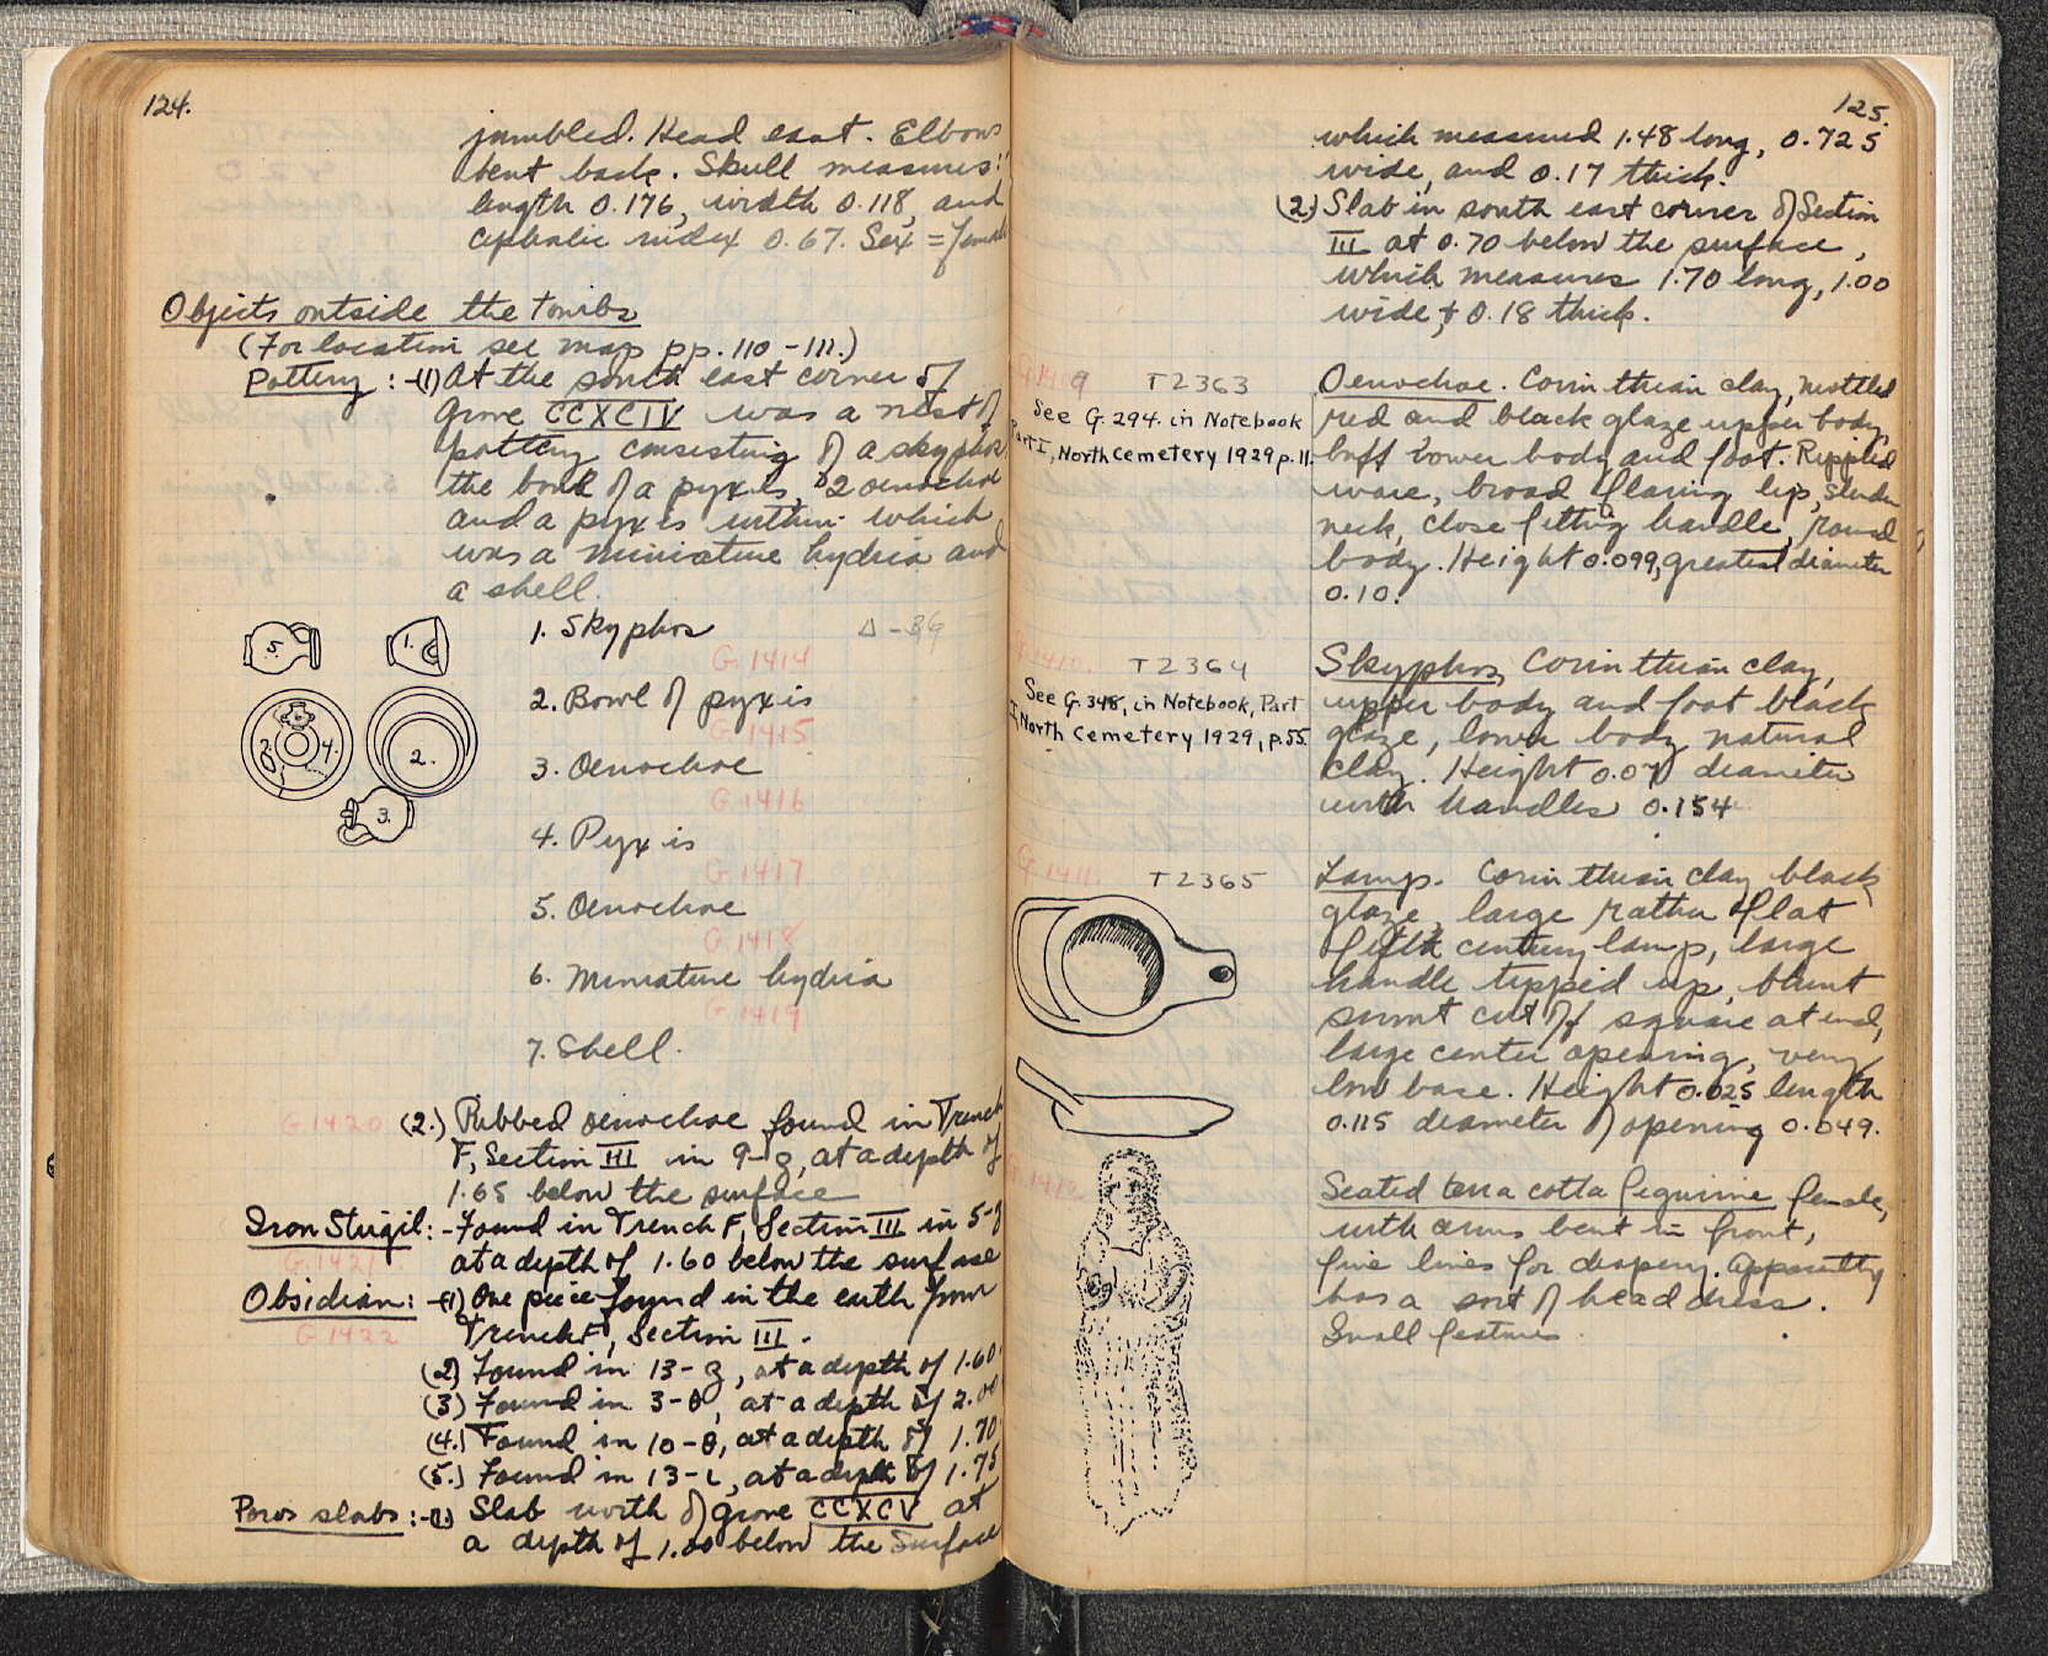 124.
jumbled. Head east. Elbows
bent back. Skull measures:
length 0.176, width 0.118, and
cephalic index 0.67. Sex = female
Objects outside the tombs
(For location see map pp. 110 - 111.)
Pottery : -(1) At the south east corner of
grave CCXCIV was a nest of
pottery consisting of a skyphos,
the bowl of a pyxis, 2 oenochoe
and a pyxis within which
was a miniature hydria and
a shell.
5.
1.
2.
4.
3.
1. Skyphos
G 1414
2. Bowl of pyxis
G 1415
3. Oenochoe
G 1416
4. Pyxis
G 1417
5. Oenochoe
G 1418
6. Miniature hydria
G 1419
7. Shell.
G 1420 (2.) Ribbed oenochoe found in Trench
F, Section III in 9-ʒ, at a depth of
1.65 below the surface
Iron Strigil: - Found in Trench F, Section III in 5-ʒ
G. 1421 at a depth of 1.60 below the surface
Obsidian: -(1) One piece found in the earth from
G 1422 Trench F, Section III.
(2) Found in 13-ʒ, at a depth of 1.60.
(3) Found in 3-θ, at a depth of 2.00
(4.) Found in 10-θ, at a depth of 1.70
(5.) Found in 13-ι, at a depth of 1.75
Poros slabs: -(1.) Slab north of grave CCXCV at
a depth of 1.00 below the surface
125.
which measured 1.48 long, 0.725
wide, and 0.17 thick.
(2.) Slab in south east corner of Section
III at 0.70 below the surface,
which measures 1.70 long, 1.00
wide, + 0.18 thick.
T2363
See G. 294. in Notebook
Part I, North Cemetery 1929 p. 11.
Oenochoe. Corinthian clay, mottled
red and black glaze upper body,
buff lower body and foot. Rippled
ware, broad flaring lip, slender
neck, close fitting handle, round
body. Height 0.099, greatest diameter
0.10.
G 1410. T2364
See G. 348, in Notebook, Part
I, North Cemetery 1929, p. 55.
Skyphos, Corinthian clay,
upper body and foot black
glaze, lower body natural
clay. Height 0.07 diameter
with handles 0.154
G 1411. T2365
Lamp. Corinthian clay black
glaze, large rather flat
fifth century lamp, large
handle tipped up, blunt
snout cut off square at end,
large center opening, very
low base. Height 0.025 length
0.115 diameter of opening 0.049.
G. 1412
Seated terra cotta figurine female,
with arms bent in front,
fine lines for drapery. Apparently
has a sort of head dress.
Small features.